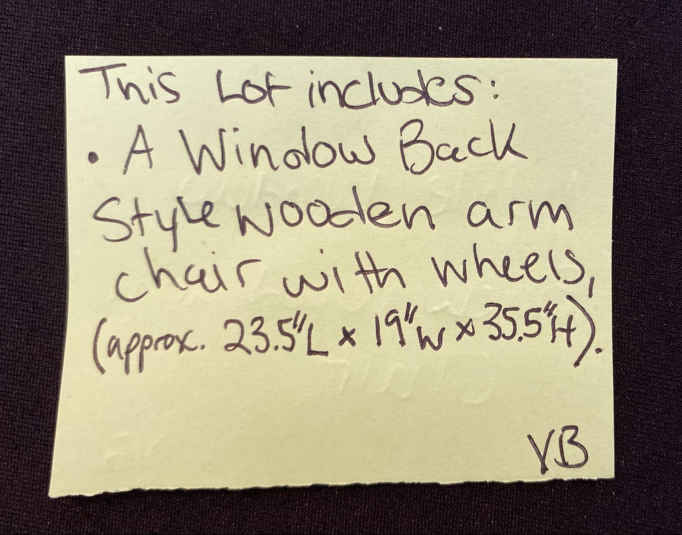 This Lot includes:
• A Window Back
Style wooden arm
chair with wheels,
(approx. 23.5"L x 19"W x 35.5"H).
YB